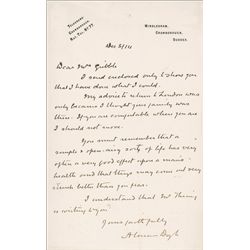 TELEGRAMS
CROWBOROUGH.
WINDLESHAM,
CROWBOROUGH,
SUSSEX.
Dec 5/14
Dear Mrs Gribble
I send enclosed only to show you
that I have done what I could.
My advice to return to London was
only because I thought your family was
there. If you are comfortable where you are
I should not move.
You must remember that a
simple & open-airy sort of life has very
often a very good effect upon a man's
health and that things may turn out very
much better than you fear.
I understand that Mr Thring
is writing to you
Yours faithfully
A Conan Doyle